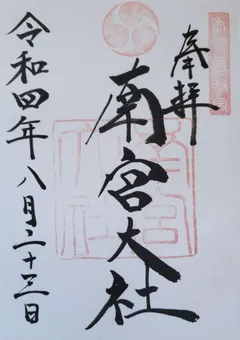 奉拝
南宮大社
令和四年八月二十三日